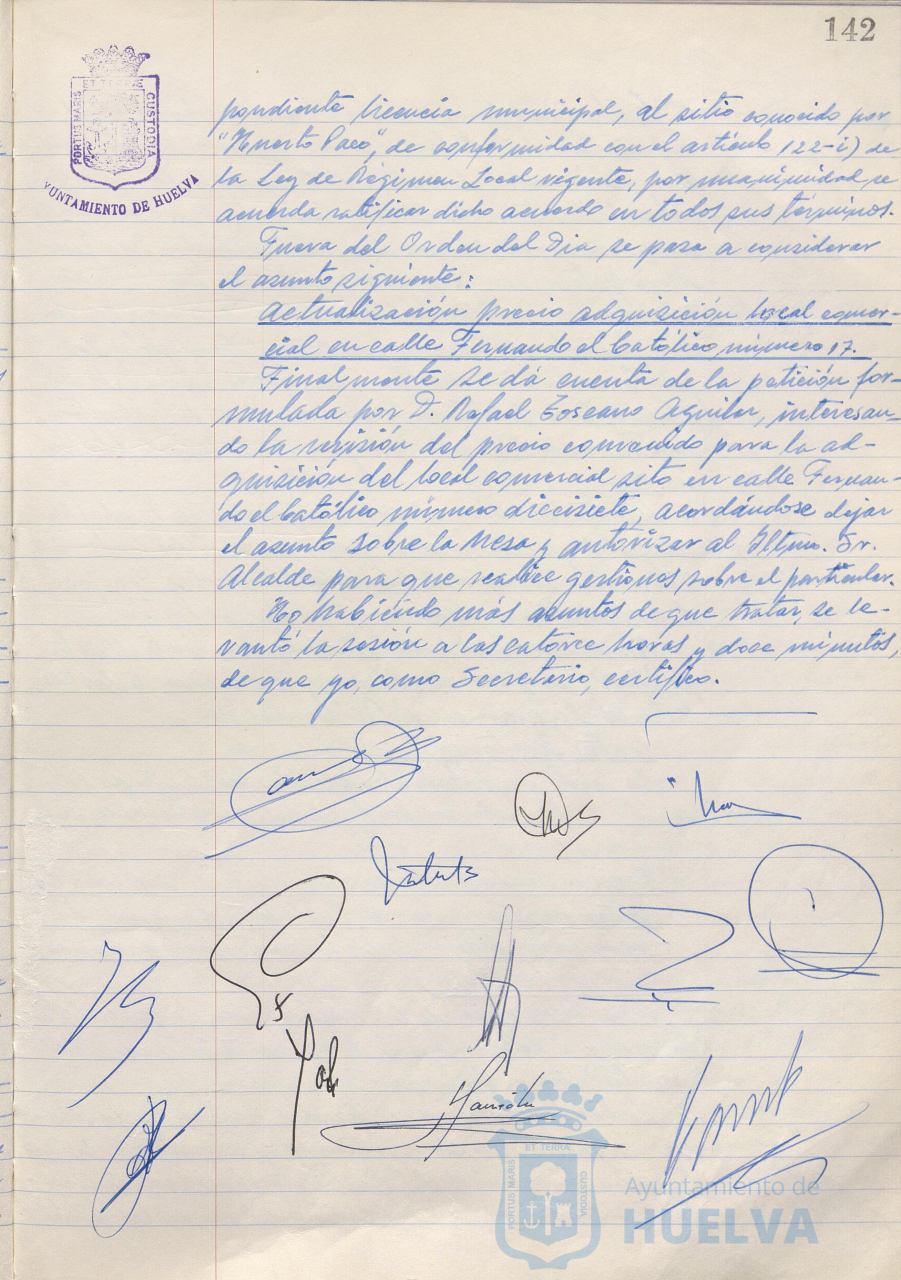 142
PORTUS MARIS ET TERRAE CUSTODIA
YUNTAMIENTO DE HUELVA
pondiente licencia municipal, al sitio conocido por
"Huerto Paco", de conformidad con el artículo 122-i) de
la Ley de Régimen Local vigente, por unanimidad se
acuerda ratificar dicho acuerdo en todos sus términos.
Fuera del Orden del Dia se pasa a considerar
el asunto siguiente:
Actualización precio adquisición local comer-
cial en calle Fernando el Católico, número 17.
Finalmente se dá cuenta de la petición for-
mulada por D. Rafael Toscano Aguilar, interesan-
do la revisión del precio convenido para la ad-
quisición del local comercial sito en calle Fernan-
do el Católico número diecisiete, acordándose dejar
el asunto sobre la Mesa y autorizar al Iltmo. Sr.
Alcalde para que realice gestiones sobre el particular.
No habiendo más asuntos de que tratar, se le-
vantó la sesión a las catorce horas y doce minutos,
de que yo, como Secretario, certifico.
PORTUS MARIS ET TERRAE CUSTODIA
Ayuntamiento de
HUELVA